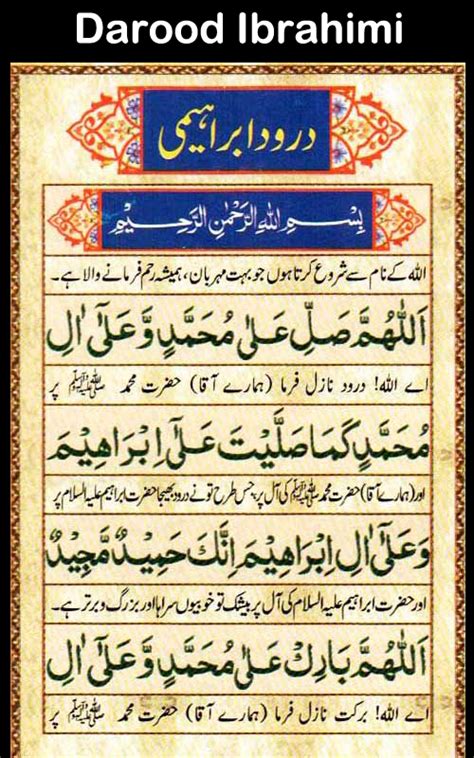 Darood Ibrahimi
درود ابراہیمی
بِسْمِ اللهِ الرَّحْمٰنِ الرَّحِيْمِ
اللہ کے نام سے شروع کرتا ہوں جو بہت مہربان، ہمیشہ رحم فرمانے والا ہے۔
اَللّٰهُمَّ صَلِّ عَلٰى مُحَمَّدٍ وَّعَلٰٓى اٰلِ
اے اللہ! درود نازل فرما (ہمارے آقا) حضرت محمد ﷺ پر
مُحَمَّدٍ كَمَا صَلَّيْتَ عَلٰٓى اِبْرَاهِيْمَ
اور (ہمارے آقا) حضرت محمد ﷺ کی آل پر جس طرح تو نے درود بھیجا حضرت ابراہیم علیہ السلام پر
وَعَلٰٓى اٰلِ اِبْرَاهِيْمَ اِنَّكَ حَمِيْدٌ مَّجِيْدٌ
اور حضرت ابراہیم علیہ السلام کی آل پر بیشک تو خوبیوں سراہا اور بزرگ و برتر ہے۔
اَللّٰهُمَّ بَارِكْ عَلٰى مُحَمَّدٍ وَّعَلٰٓى اٰلِ
اے اللہ! برکت نازل فرما (ہمارے آقا) حضرت محمد ﷺ پر